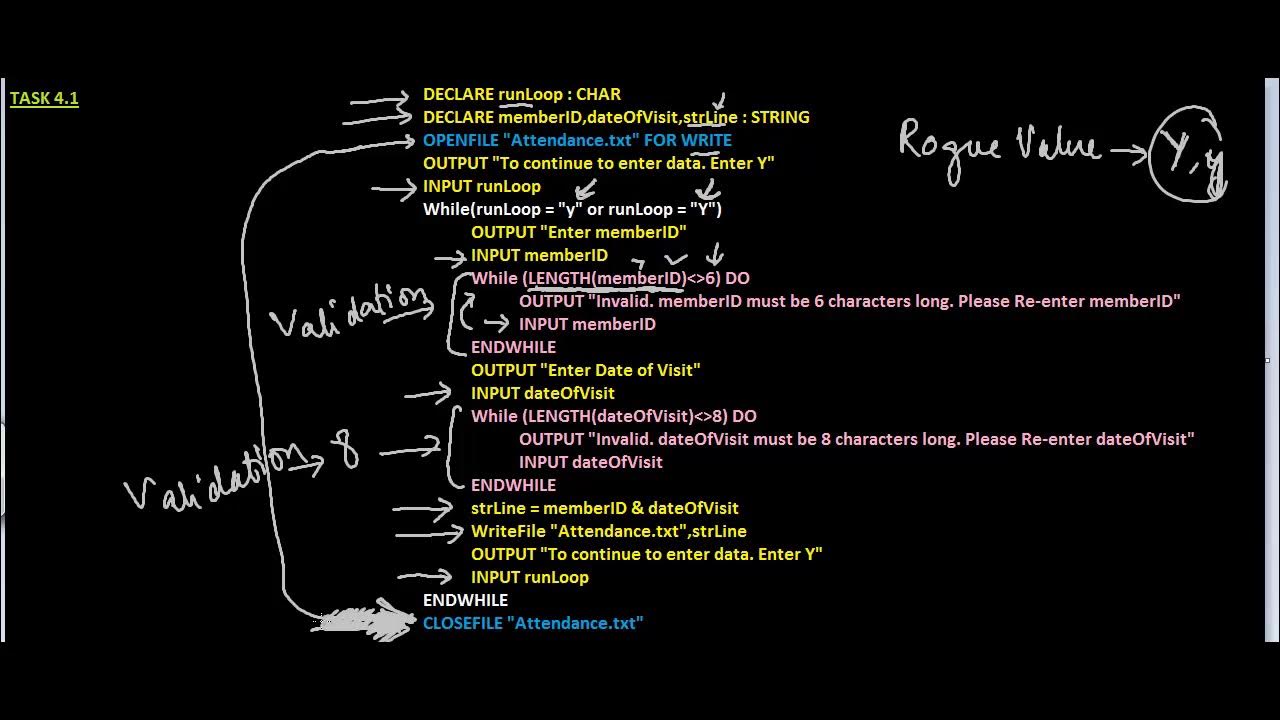 TASK 4.1
DECLARE runLoop : CHAR
DECLARE memberID,dateOfVisit,strLine : STRING
OPENFILE "Attendance.txt" FOR WRITE
OUTPUT "To continue to enter data. Enter Y"
INPUT runLoop
While(runLoop = "y" or runLoop = "Y")
OUTPUT "Enter memberID"
INPUT memberID
While (LENGTH(memberID)<>6) DO
OUTPUT "Invalid. memberID must be 6 characters long. Please Re-enter memberID"
INPUT memberID
ENDWHILE
OUTPUT "Enter Date of Visit"
INPUT dateOfVisit
While (LENGTH(dateOfVisit)<>8) DO
OUTPUT "Invalid. dateOfVisit must be 8 characters long. Please Re-enter dateOfVisit"
INPUT dateOfVisit
ENDWHILE
strLine = memberID & dateOfVisit
WriteFile "Attendance.txt",strLine
OUTPUT "To continue to enter data. Enter Y"
INPUT runLoop
ENDWHILE
CLOSEFILE "Attendance.txt"
Rogue Value → Y, y
Validation
Validation → 8